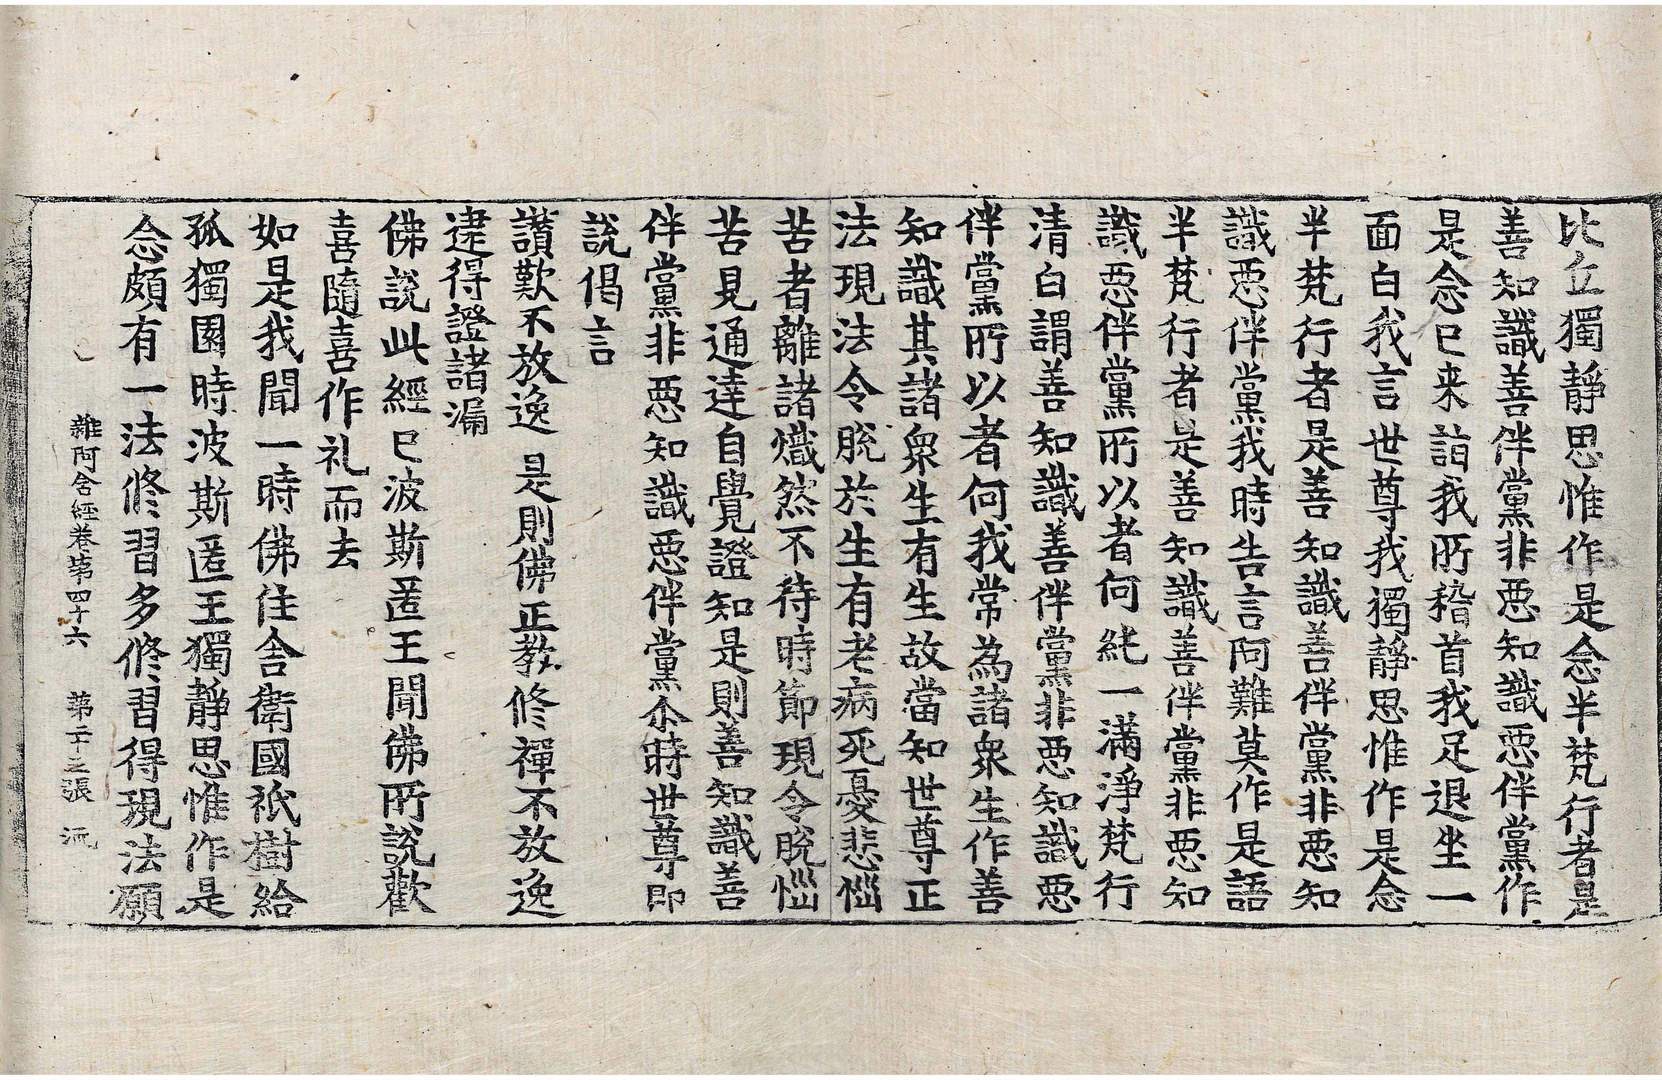 比丘獨靜思惟作是念半梵行者是
善知識善伴黨非惡知識惡伴黨作
是念已来詣我所稽首我足退坐一
面白我言世尊我獨靜思惟作是念
半梵行者是善知識善伴黨非惡知
識惡伴黨我時告言阿難莫作是語
半梵行者是善知識善伴黨非惡知
識惡伴黨所以者何純一滿淨梵行
清白謂善知識善伴黨非惡知識惡
伴黨所以者何我常為諸衆生作善
知識其諸衆生有生故當知世尊正
法現法令脫於生有老病死憂悲惱
苦者離諸熾然不待時節現令脫惱
苦見通達自覺證知是則善知識善
伴黨非惡知識惡伴黨尒時世尊即
說偈言
讃歎不放逸 是則佛正教修禪不放逸
逮得證諸漏
佛說此經已波斯匿王聞佛所說歡
喜隨喜作礼而去
如是我聞一時佛住舍衛國祇樹給
孤獨園時波斯匿王獨靜思惟作是
念頗有一法修習多修習得現法願
雜阿含經卷第四十六 第二十三張